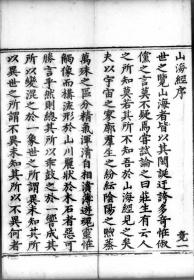 山海經序
世之覽山海者皆以其閎誕迂誇多奇怪俶
儻之言莫不疑焉嘗試論之曰莊生有云人
之所知莫若其所不知吾於山海經見之矣
夫以宇宙之寥廓羣生之紛紜陰陽之煦蒸
萬殊之區分精氣渾淆自相濆薄遊魂靈怪
觸像而構流形於山川麗狀於木石者惡可
勝言乎然則總其所以乖鼓之於一響成其
所以變混之於一象世之所謂異未知其所
以異世之所謂不異未知其所以不異何者